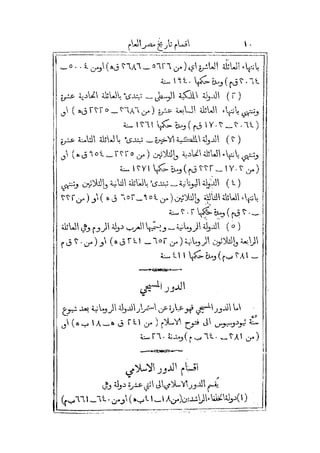 ١٠ اقسام تاريخ مصر العام
بانتهاء العائلة العاشرة اي (من ٥٦٢٦ – ٣٦٨٦ ق ه) او من ٥٠٠٤ –
٣٠٦٤ ق م) ومدة حكمها ١٩٤٠ سنة
(٢) الدولة الملكية الوسطى – تبتدئ بالعائلة الحادية عشرة
وتنتهي بانتهاء العائلة السابعة عشرة (من ٣٦٨٦ – ٢٣٢٥ ق ه) او
(٣٠٦٤ – ١٧٠٣ ق م) ومدة حكمها ١٣٦١ سنة
(٣) الدولة الملكية الاخيرة – تبتدئ بالعائلة الثامنة عشرة
وتنتهي بانتهاء العائلة الحادية والثلاثين (من ٢٣٢٥ – ٩٥٤ ق ه) او
(من ١٧٠٣ – ٣٣٢ ق م) ومدة حكمها ١٣٧١ سنة
(٤) الدولة اليونانية – تبتدئ بالعائلة الثانية والثلاثين وتنتهي
بانتهاء العائلة الثالثة والثلاثين (من ٩٥٤ – ٦٥٢ ق ه) او (من ٣٣٢
– ٣٠ ق م) ومدة حكمها ٣٠٢ سنة
(٥) الدولة الرومانية – ويسميها العرب دولة الروم وهي العائلة
الرابعة والثلاثون الرومانية (من ٦٥٢ – ٢٤١ ق ه) او (من ٣٠ ق م
– ٣٨١ ب م) ومدة حكمها ٤١١ سنة
الدور المسيحي
اما الدور المسيحي فهو عبارة عن استمرار الدولة الرومانية بعد شيوع
سنّة ثيودوسيوس الى فتوح الاسلام (من ٢٤١ ق ه – ١٨ ب ه) او
(من ٣٨١ – ٦٤٠ ب م) ومدته ٢٦٠ سنة
اقسام الدور الاسلامي
يقسم الدور الاسلامي الى اثنتي عشرة دولة وهي
(١) دولة الخلفاء الراشدين (من ١٨ – ٤١ ب ه) او من ٦٤٠ – ٦٦١ ب م)